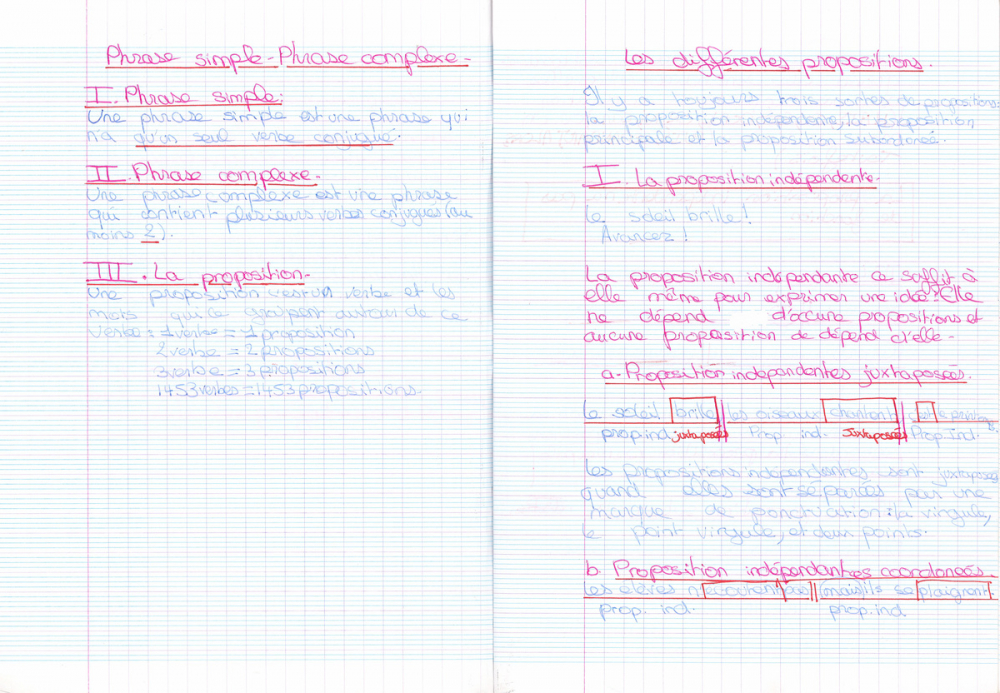 Phrase simple - Phrase complexe -
I. Phrase simple:
Une phrase simple est une phrase qui
n'a qu'un seul verbe conjugué.
II. Phrase complexe -
Une phrase complexe est une phrase
qui contient plusieurs verbes conjugués (au
moins 2).
III. La proposition -
Une proposition c'est un verbe et les
mots qui ce groupent autour de ce
verbe: 1 verbe = 1 proposition
2 verbe = 2 propositions
3 verbe = 3 propositions
1453 verbes = 1453 propositions.
Les différentes propositions.
Il y a toujours trois sortes de propositions:
la proposition indépendente, la proposition
principale et la proposition subordoneé.
I. La proposition indépendente.
Le soleil brille!
Avancez!
La proposition indépendante ce suffit à
elle même pour exprimer une idée. Elle
ne dépend d'accune propositions et
aucune proposition de dépend d'elle -
a. Proposition indépendantes juxtaposées.
Le soleil brille, les oiseaux chantent,
prop. ind. juxtaposés Prop. ind. Juxtaposés Prop. ind.
Les propositions indépendentes sont juxtaposés
quand elles sont séparées par une
marque de ponctuation: la virgule,
le point virgule, et deux points.
b. Proposition indépendantes coordoneés.
Les élèves pas mais ils se plaignent.
prop. ind. prop. ind